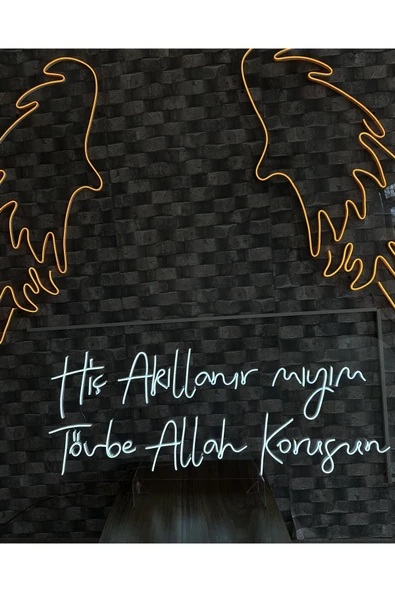 Hiç Akıllanır mıyım
Tövbe Allah Korusun